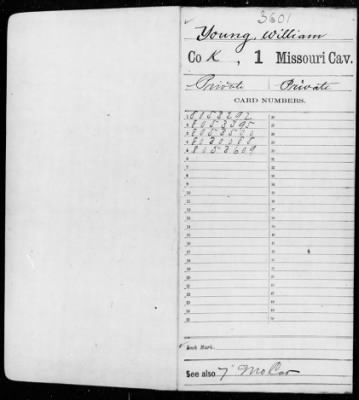 3601
Young, William
Co K, 1 Missouri Cav.
Private Private
CARD NUMBERS.
1 8053292
2 8053395
3
4
5 8053609
Book Mark:
See also 7' Mo Cav